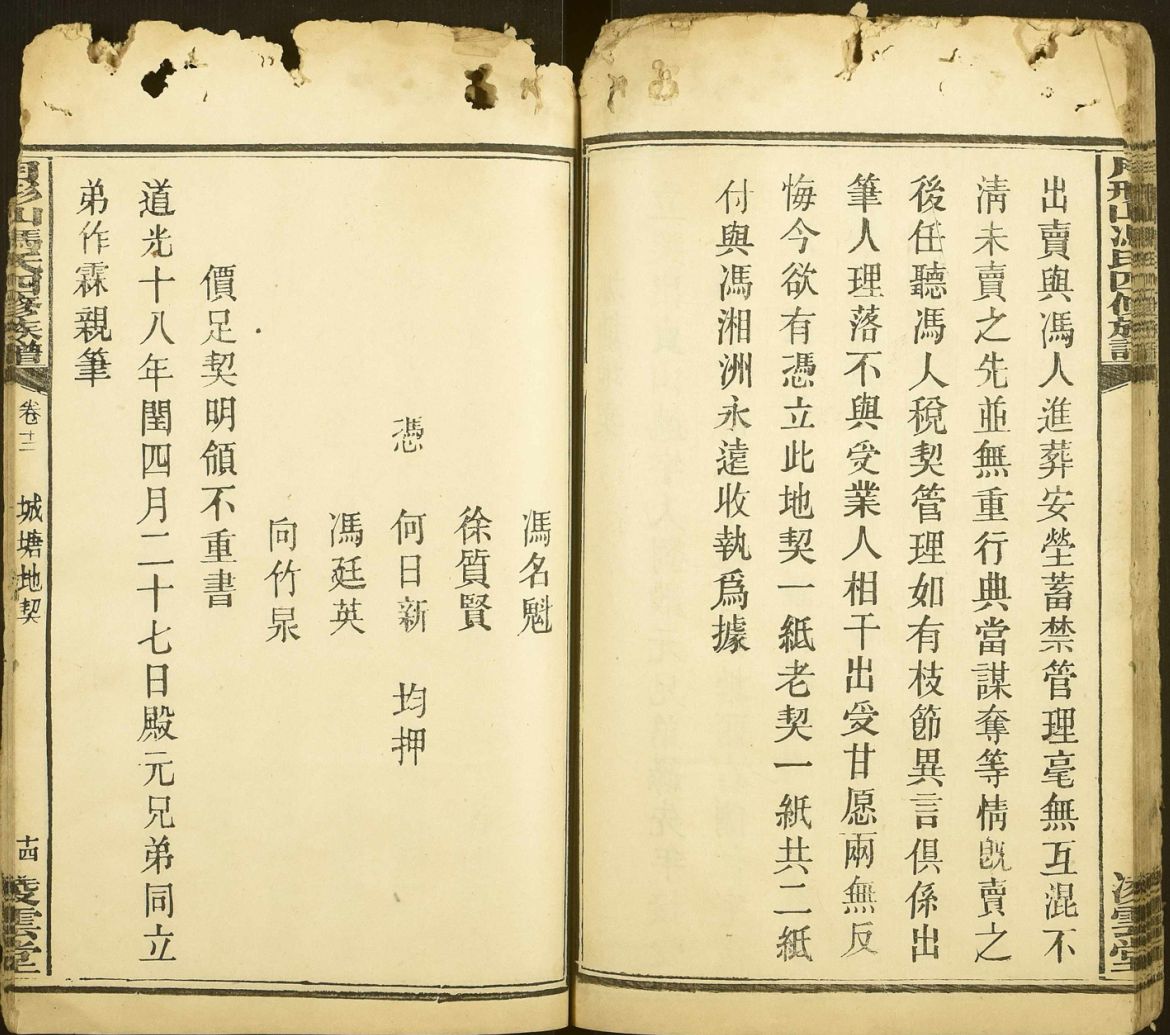 月形山馮氏四修族譜
凌雲堂
出賣與馮人進葬安塋蓄禁管理毫無互混不
清未賣之先並無重行典當謀奪等情既賣之
後任聽馮人稅契管理如有枝節異言俱係出
筆人理落不與受業人相干出受甘愿兩無反
悔今欲有憑立此地契一紙老契一紙共二紙
付與馮湘洲永遠收執爲據
馮名魁
徐質賢
憑 何日新 均押
馮廷英
向竹泉
價足契明領不重書
道光十八年閏四月二十七日殿元兄弟同立
弟作霖親筆
月形山馮氏四修族譜 卷十二 城塘地契 十四 凌雲堂